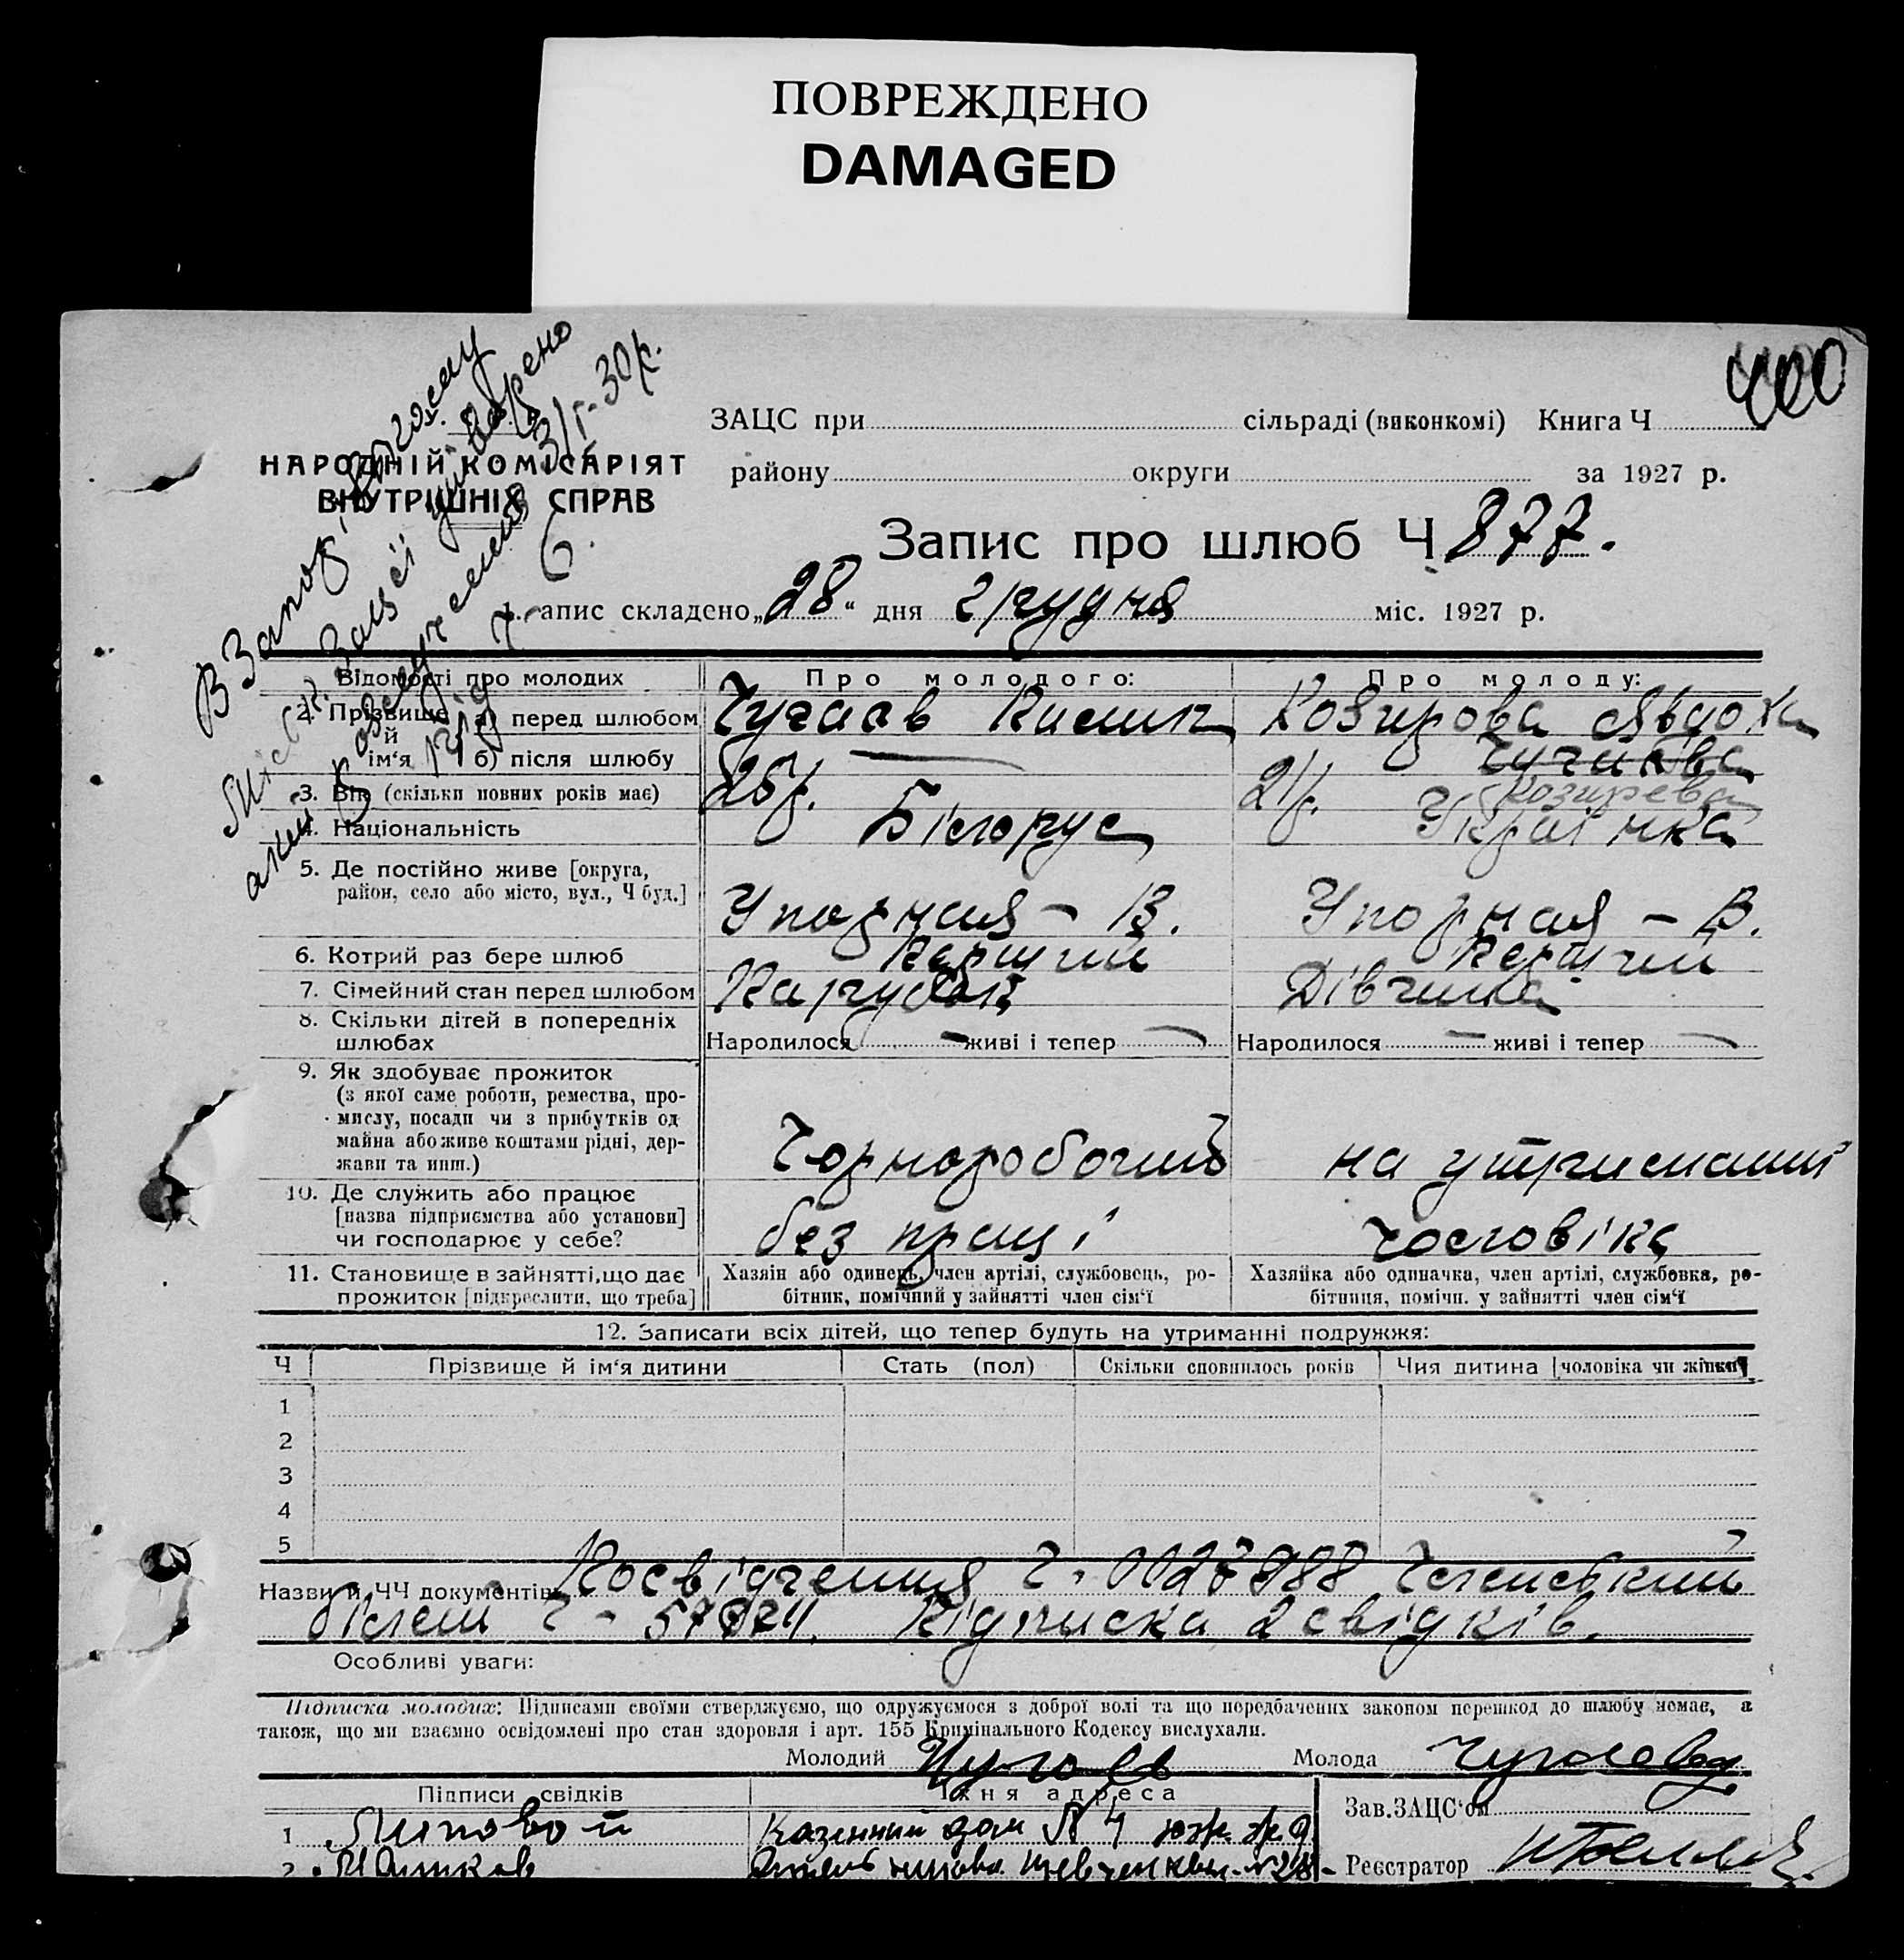 ПОВРЕЖДЕНО
DAMAGED
400
В Запоріжському
міськ. Загсі утворено
акт розлучення 31/I-30р.
під ч. 6.
НАРОДНІЙ КОМІСАРІЯТ
ВНУТРІШНІХ СПРАВ
ЗАЦС при сільраді (виконкомі) Книга Ч
району округи за 1927 р.
Запис про шлюб Ч 877.
1. апис складено „28“ дня грудня міс. 1927 р.
Відомості про молодих Про молодого: Про молоду:
2. Прізвище й ім‘я а) перед шлюбом Чугаєв Козирова Явдоха
б) після шлюбу — Чугаєва Козирева
3. Вік (скільки повних років має) 26р. 21р.
4. Національність Білорус Українка
5. Де постійно живе [округа,
район, село або місто, вул., Ч буд.] Упорная – 13. Упорная – 13.
6. Котрий раз бере шлюб Перший Перший
7. Сімейний стан перед шлюбом Парубок Дівчина
8. Скільки дітей в попередніх
шлюбах Народилося — живі і тепер — Народилося — живі і тепер —
9. Як здобуває прожиток
(з якої саме роботи, ремества, про-
мислу, посади чи з прибутків од
майна або живе коштами рідні, дер-
жави та инш.) Чорноробочий на утриманні
10. Де служить або працює
[назва підприємства або установи]
чи господарює у себе? без праці чоловіка
11. Становище в зайнятті, що дає
прожиток [підкреслити, що треба]
Хазяїн або одинець, член артілі, службовець, ро-
бітник, помічний у зайнятті член сім‘ї
Хазяйка або одиначка, член артілі, службовка, ро-
бітниця, помічн. у зайнятті член сім‘ї
12. Записати всіх дітей, що тепер будуть на утриманні подружжя:
Ч Прізвище й ім‘я дитини Стать (пол) Скільки сповнилось років Чия дитина [чоловіка чи жінки]
1
2
3
4
5
Назви й ЧЧ документів: Посвідчення Ч. Членський
білет Ч – Підписка 2 свідків.
Особливі уваги:
Підписка молодих: Підписами своїми стверджуємо, що одружуємося з доброї волі та що передбачених законом перешкод до шлюбу немає, а
також, що ми взаємно освідомлені про стан здоровля і арт. 155 Кримінального Кодексу вислухали.
Молодий Чугаев Молода Чугаева
Підписи свідків Їхня адреса
Зав. ЗАЦС‘ом
1 Липовой Казенный дом № 4 юж. ж. д.
2
Реєстратор